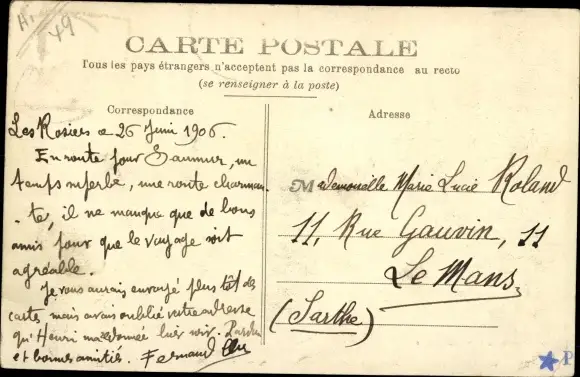 A. 49
CARTE POSTALE
Tous les pays étrangers n'acceptent pas la correspondance au recto
(se renseigner à la poste)
Correspondance
Adresse
Les Rosiers ce 26 Juin 1906.
En route pour Saumur, un
temps superbe, une route charman-
te, il ne manque que de bons
amis pour que le voyage soit
agréable.
Je vous aurais envoyé plus tôt des
cartes mais avais oublié votre adresse
qu'Henri m'a donnée hier soir. Pardon
et bonnes amitiés. Fernand
Mademoiselle Marie Lucie Roland
11, Rue Gauvin, 11
Le Mans
(Sarthe)
P